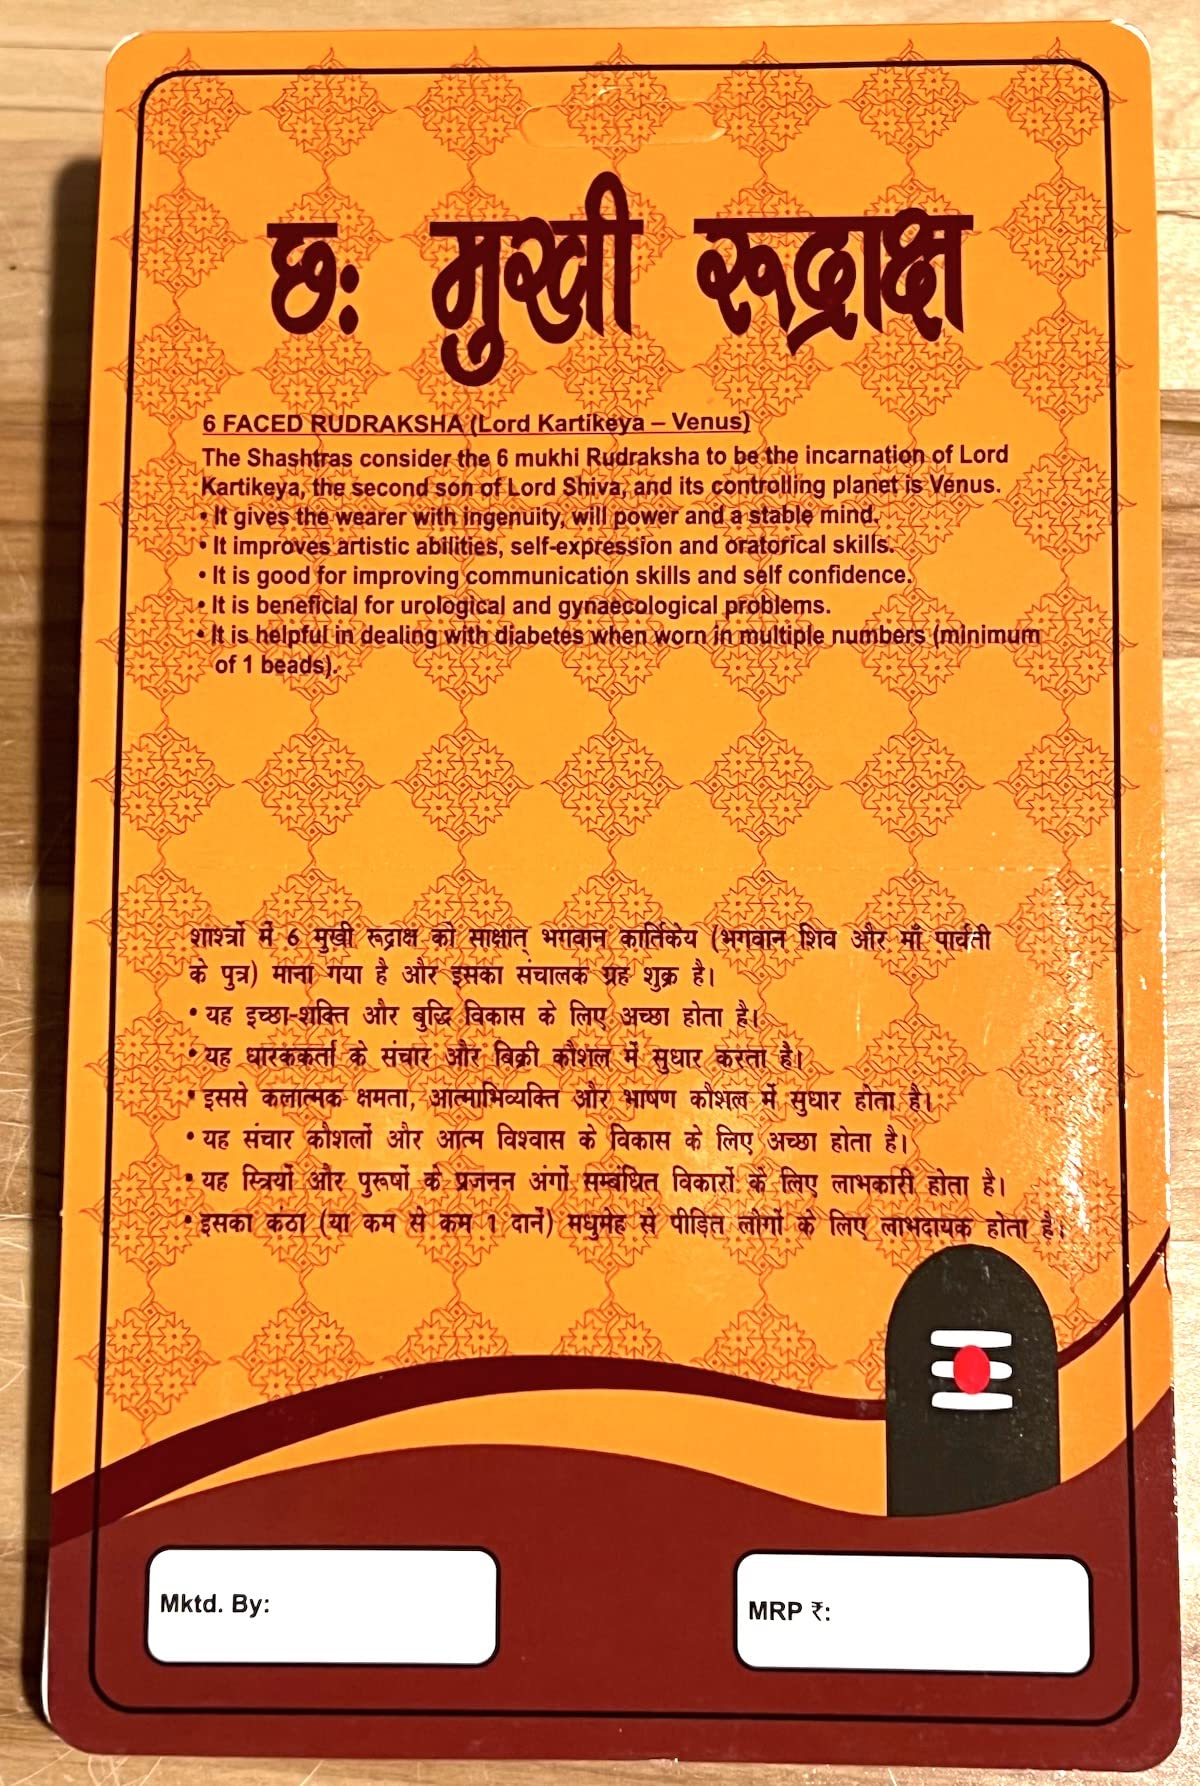 छः मुखी रूद्राक्ष
6 FACED RUDRAKSHA (Lord Kartikeya – Venus)
The Shashtras consider the 6 mukhi Rudraksha to be the incarnation of Lord
Kartikeya, the second son of Lord Shiva, and its controlling planet is Venus.
• It gives the wearer with ingenuity, will power and a stable mind.
• It improves artistic abilities, self-expression and oratorical skills.
• It is good for improving communication skills and self confidence.
• It is beneficial for urological and gynaecological problems.
• It is helpful in dealing with diabetes when worn in multiple numbers (minimum
of 1 beads).
शाश्त्रों में 6 मुखी रूद्राक्ष को साक्षात् भगवान कार्तिकेय (भगवान शिव और माँ पार्वती
के पुत्र) माना गया है और इसका संचालक ग्रह शुक्र है।
• यह इच्छा-शक्ति और बुद्धि विकास के लिए अच्छा होता है।
• यह धारककर्ता के संचार और बिक्री कौशल में सुधार करता है।
• इससे कलात्मक क्षमता, आत्माभिव्यक्ति और भाषण कौशल में सुधार होता है।
• यह संचार कौशलों और आत्म विश्वास के विकास के लिए अच्छा होता है।
• यह स्त्रियों और पुरूषों के प्रजनन अंगों सम्बंधित विकारों के लिए लाभकारी होता है।
• इसका कंठा (या कम से कम 1 दानें) मधुमेह से पीड़ित लोगों के लिए लाभदायक होता है।
Mktd. By:
MRP ₹: